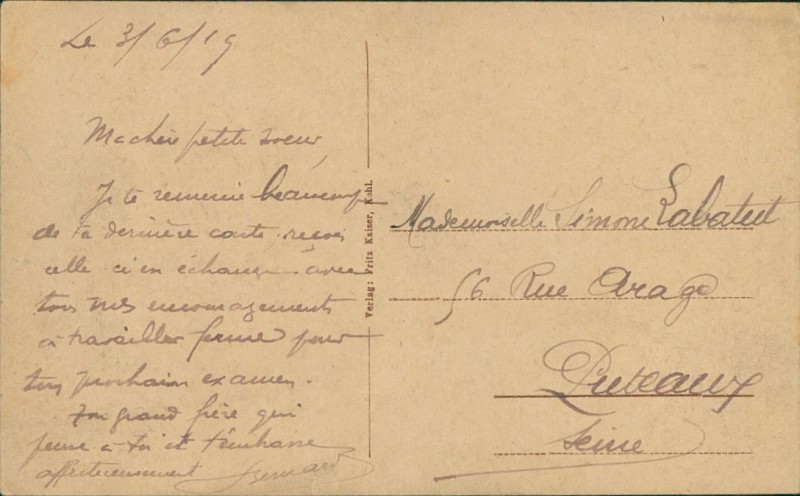 Le 3/6/19
Ma chère petite soeur,
Je te remercie beaucoup
de ta dernière carte. reçois
celle ci en échange avec
tous mes encouragements
à travailler ferme pour
ton prochain examen.
Ton grand frère qui
pense à toi et t'embrasse
affectueusement Bernard
Verlag: Fritz Kaiser, Kehl.
Mademoiselle Simone Labatut
56 Rue Arago
Puteaux
Seine